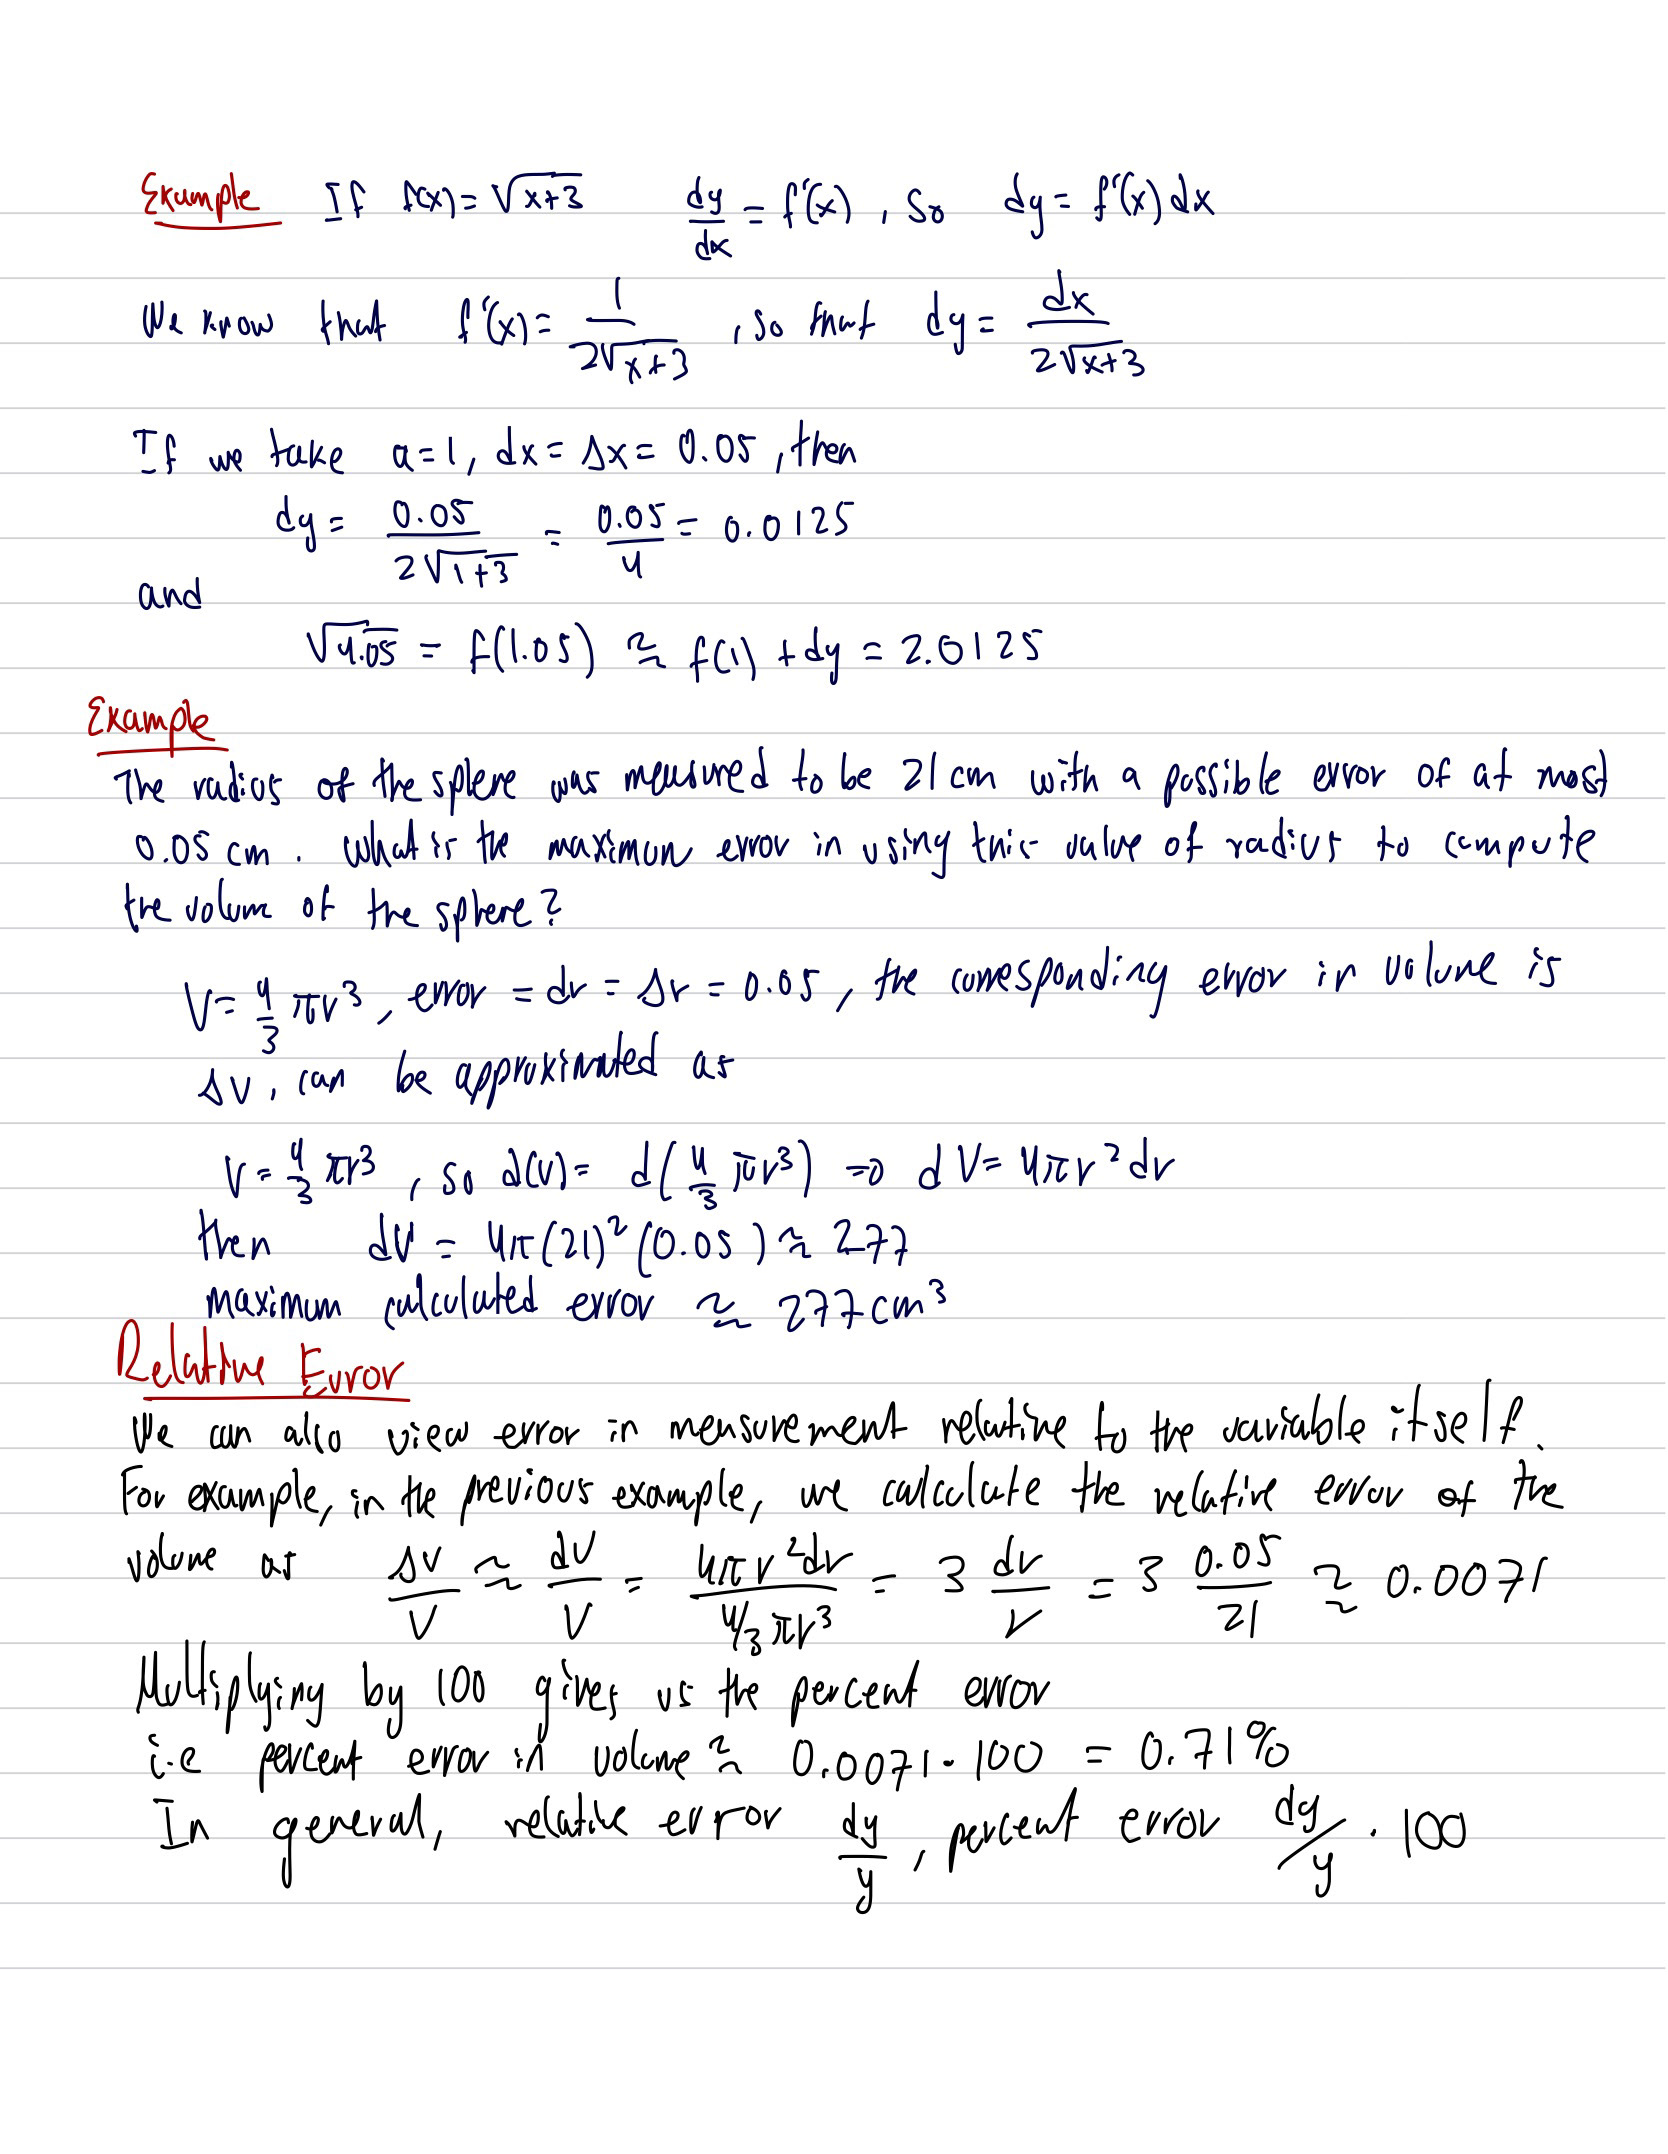 Example If f(x) = √(x+3) dy/dx = f'(x), So dy = f'(x) dx
We know that f'(x) = 1/(2√(x+3)), so that dy = dx/(2√(x+3))
If we take a=1, dx = Δx = 0.05, then
dy = 0.05/(2√(1+3)) = 0.05/4 = 0.0125
and
√4.05 = f(1.05) ≈ f(1) + dy = 2.0125
Example
The radius of the sphere was measured to be 21 cm with a possible error of at most
0.05 cm. What is the maximum error in using this value of radius to compute
the volume of the sphere?
V = 4/3 πr³, error = dr = Δr = 0.05, the corresponding error in volume is
ΔV, can be approximated as
V = 4/3 πr³, so d(V) = d(4/3 πr³) ⇒ dV = 4πr² dr
then dV = 4π(21)²(0.05) ≈ 277
maximum calculated error ≈ 277 cm³
Relative Error
We can also view error in measurement relative to the variable itself.
For example, in the previous example, we calculate the relative error of the
volume as ΔV/V ≈ dV/V = 4πr²dr/(4/3 πr³) = 3 dr/r = 3 0.05/21 ≈ 0.0071
Multiplying by 100 gives us the percent error
i.e percent error in volume ≈ 0.0071 · 100 = 0.71%
In general, relative error dy/y, percent error dy/y · 100